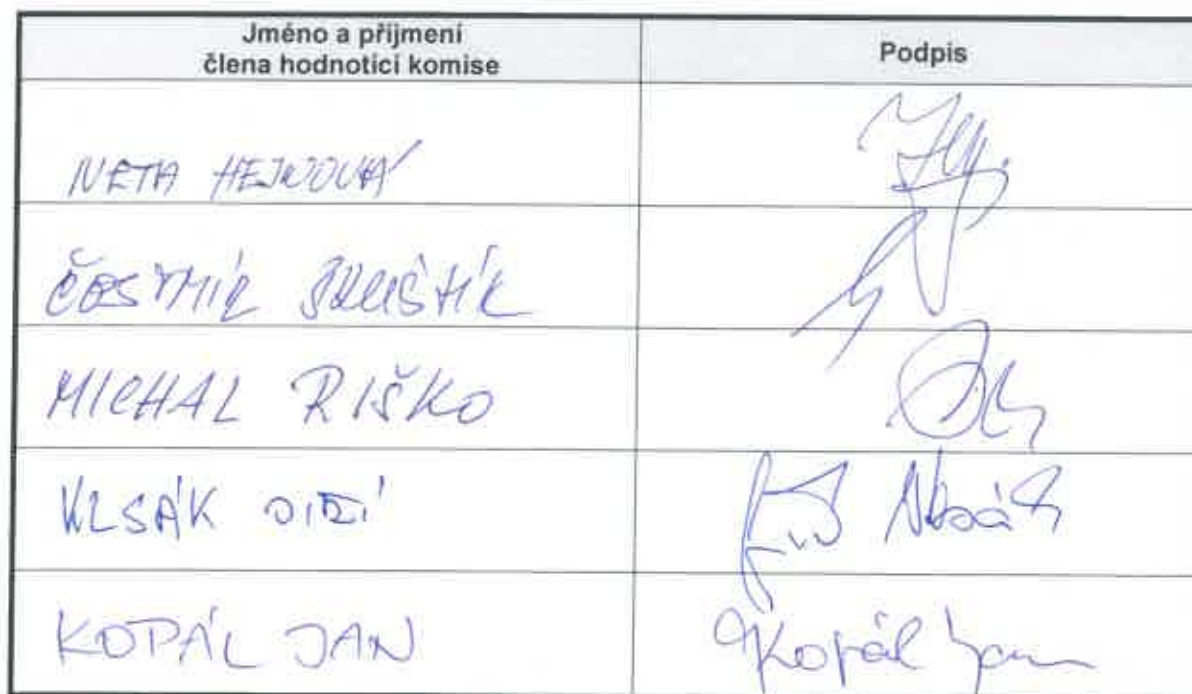 Jméno a příjmení
člena hodnotící komise
Podpis
NETA HEJNOVÁ
ČESTMÍR
MICHAL RIŠKO
KLSÁK JIŘÍ
KOPÁL JAN
Kopál Jan